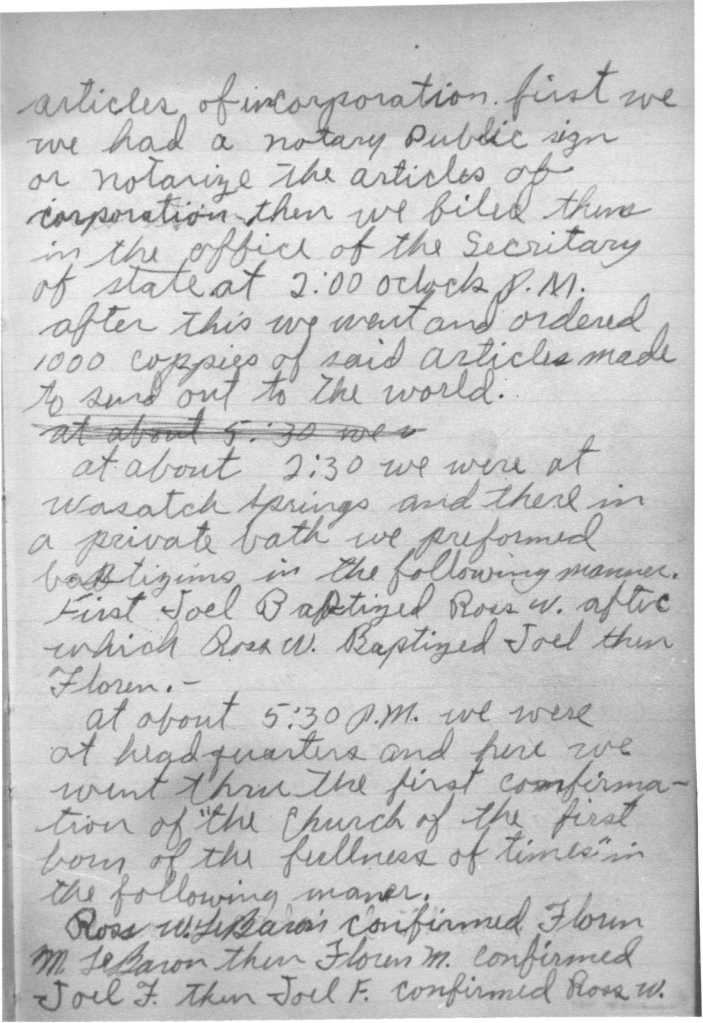 articles of incorporation. first we
we had a notary public sign
or notarize the articles of
corporation, then we filed them
in the office of the Secritary
of state at 2:00 oclock P.M.
after this we went and ordered
1000 coppies of said articles made
to send out to the world.
at about 5:30 we w
at about 2:30 we were at
Wasatch Springs and there in
a private bath we preformed
baptizims in the following manner.
First Joel Baptized Ross W. after
which Ross W. Baptized Joel then
Floren.-
at about 5:30 P.M. we were
at headquarters and here we
went thru the first confirma-
tion of "the Church of the first
born of the fullness of times" in
the following maner.
Ross W. LeBaron confirmed Floren
M. LeBaron then Floren M. confirmed
Joel F. then Joel F. confirmed Ross W.